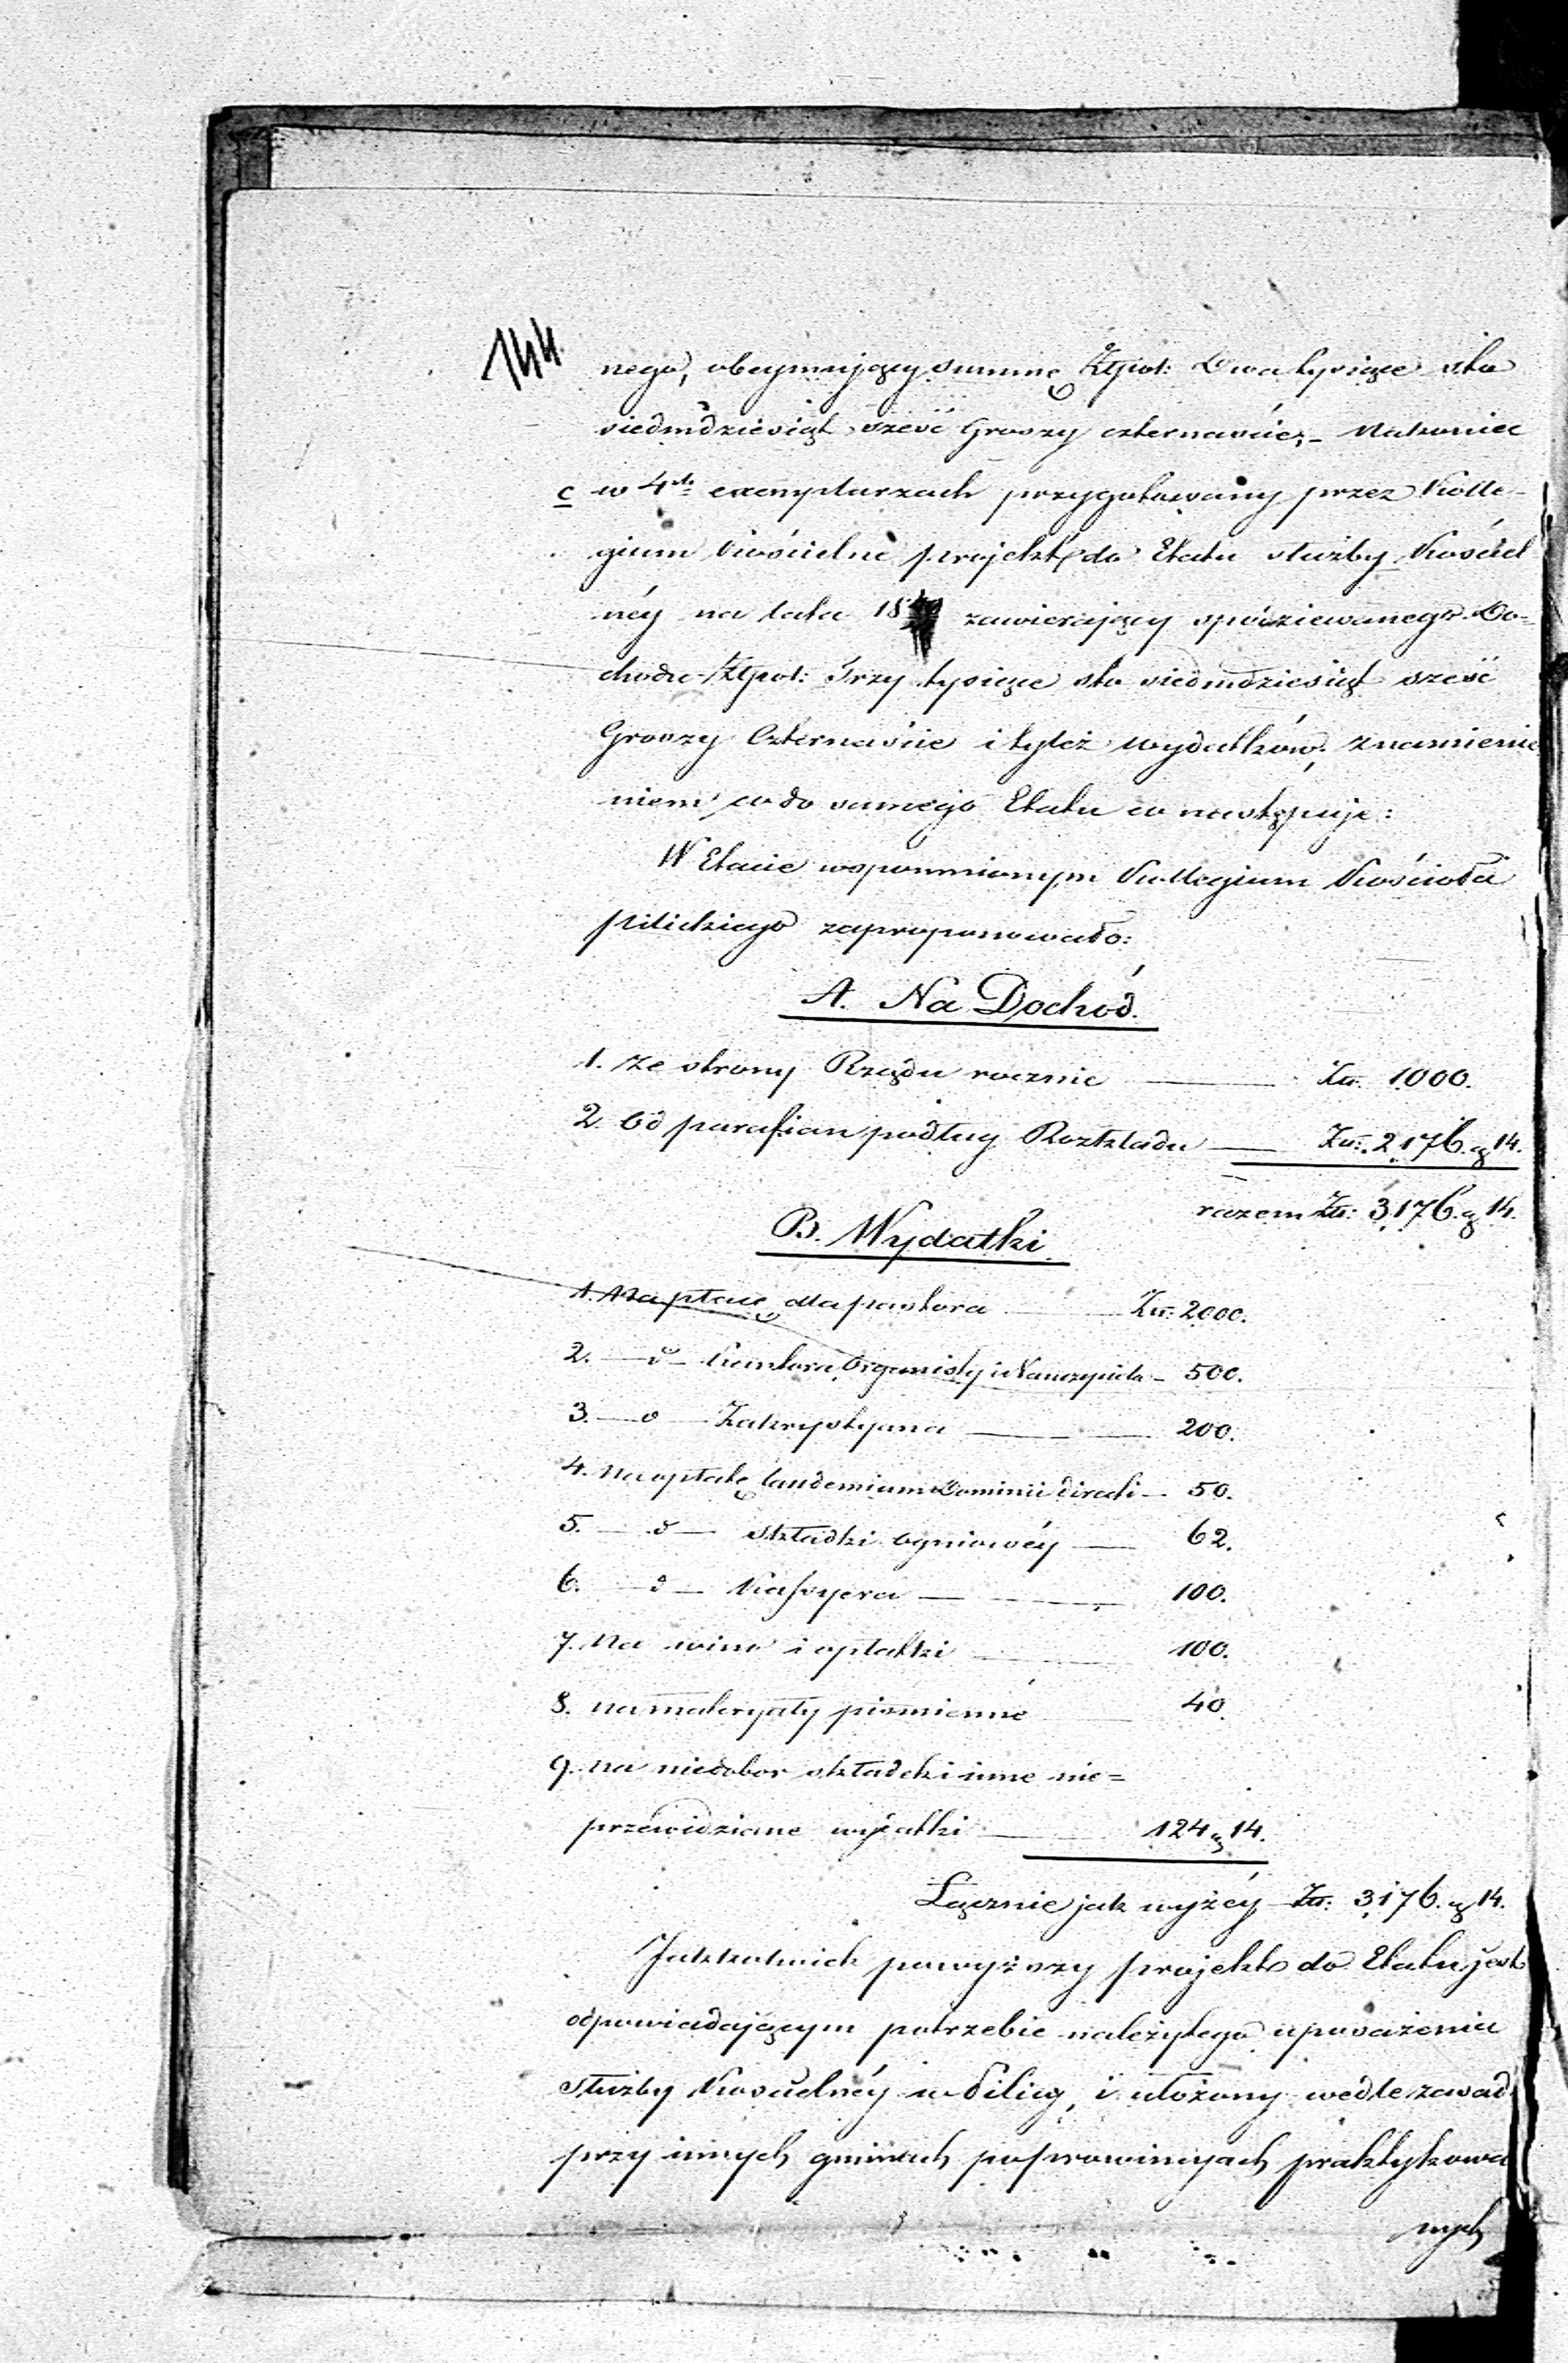 144
nego, obeymujący summę Złpol: Dwa tysiące sto
siedmdziesiąt sześć Groszy czternaście, – Nakoniec
c w 4ch exemplarzach przygotowany przez Kolle-
gium Kościelne projekt do Etatu służby Kościel
néy na lata 18 zawierający spodziewanego Do=
chodu Złpol: Trzy tysiące sto siedmdziesiąt sześć
Groszy Czternaście i tyleż wydatków, znamienie
niem co do samego Etatu co następuje:
W Etacie wspomnionym Kollegium Kościoła
pilickiego zaproponowało:
A. Na Dochód.
1. Ze strony Rządu rocznie — Złł: 1000.
2. Od parafian podług Rozkładu — Złł: 2,176. g 14.
razem Złł: 3,176. g 14.
B. Wydatki
1. Na płacę dla pastora — Złł: 2000.
2. — d — Kantora, Organisty i Nauczyciela – 500.
3. — d — Zakrystyana — 200.
4. Na opłatę laudemium Dominii directi – 50.
5. — d — składki ogniowéy — 62.
6. — d — Kassyera — 100.
7. Na wino i opłatki — 100.
8. na materyały piśmienne — 40.
9. na niedobor składek i inne nie=
przewidziane wydatki — 124 g 14.
Łącznie jak wyżéy Złł: 3,176. g 14.
Jakkolwiek powyższy projekt do Etatu jest
odpowiadającym potrzebie należytego uposażenia
służby Kościelnéy w Pilicy, i ułożony wedle zasad
przy innych gminach po prowincyach praktykowa
nych